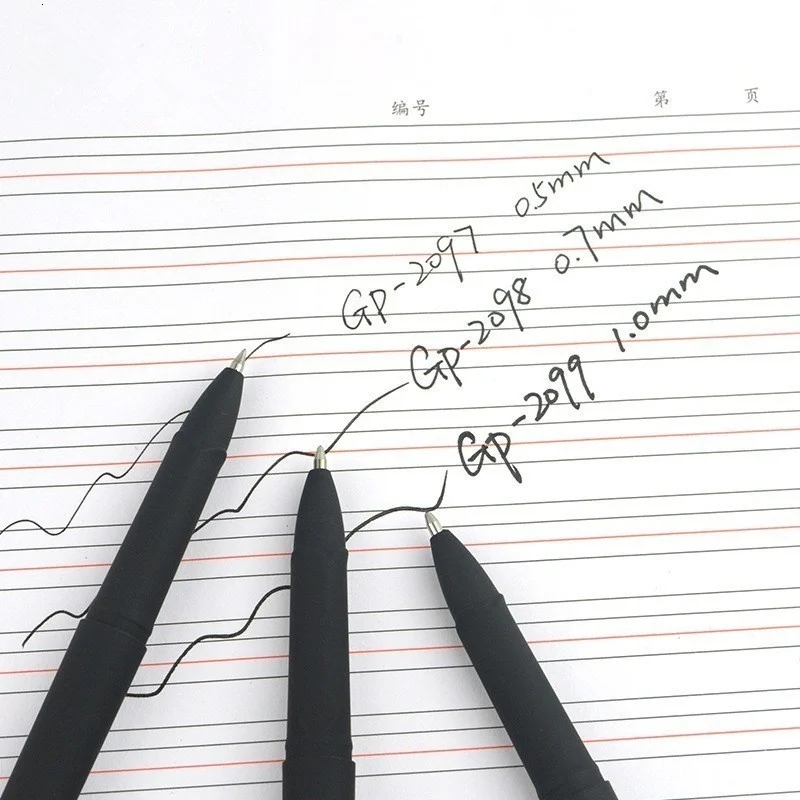 编号 第 页
GP-2097 0.5mm
GP-2098 0.7mm
GP-2099 1.0mm